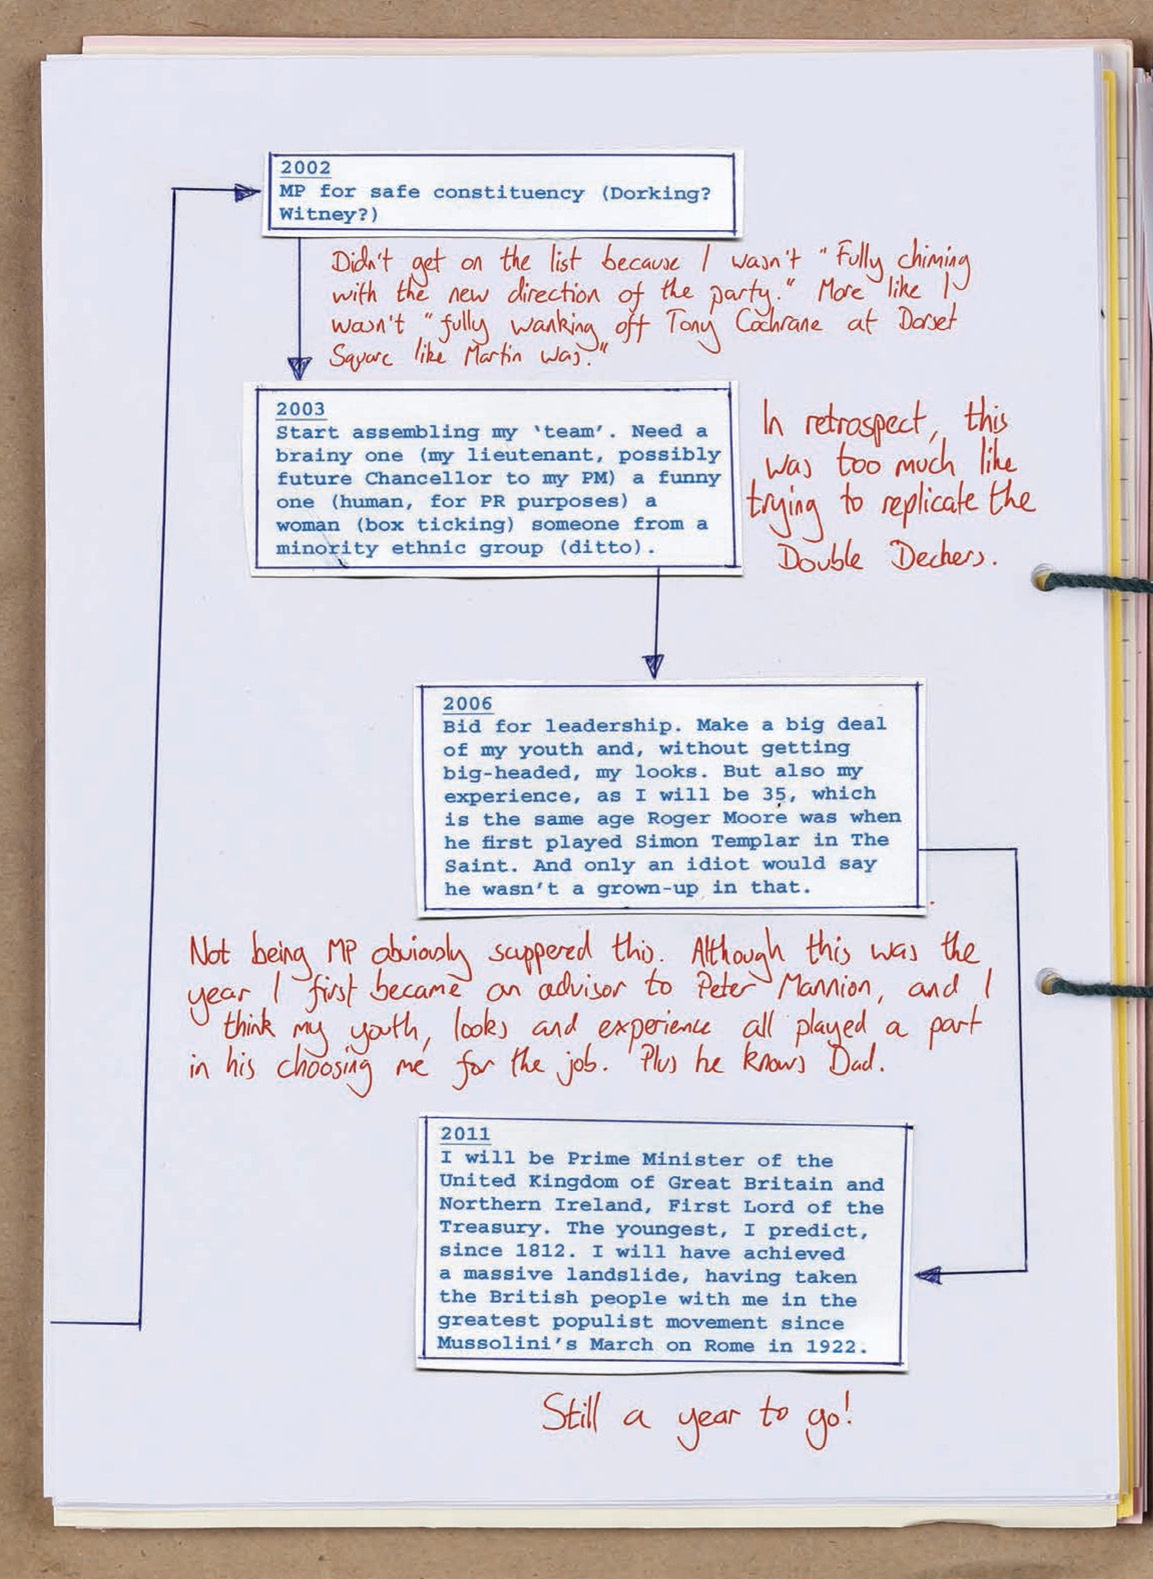 2002
MP for safe constituency (Dorking?
Witney?)
Didn't get on the list because I wasn't "Fully chiming
with the new direction of the party." More like I
wasn't "fully wanking off Tony Cochrane at Dorset
Square like Martin was."
2003
Start assembling my ‘team’. Need a
brainy one (my lieutenant, possibly
future Chancellor to my PM) a funny
one (human, for PR purposes) a
woman (box ticking) someone from a
minority ethnic group (ditto).
In retrospect, this
was too much like
trying to replicate the
Double Deckers.
2006
Bid for leadership. Make a big deal
of my youth and, without getting
big-headed, my looks. But also my
experience, as I will be 35, which
is the same age Roger Moore was when
he first played Simon Templar in The
Saint. And only an idiot would say
he wasn’t a grown-up in that.
Not being MP obviously scuppered this. Although this was the
year I first became an advisor to Peter Mannion, and I
think my youth, looks and experience all played a part
in his choosing me for the job. Plus he knows Dad.
2011
I will be Prime Minister of the
United Kingdom of Great Britain and
Northern Ireland, First Lord of the
Treasury. The youngest, I predict,
since 1812. I will have achieved
a massive landslide, having taken
the British people with me in the
greatest populist movement since
Mussolini’s March on Rome in 1922.
Still a year to go!